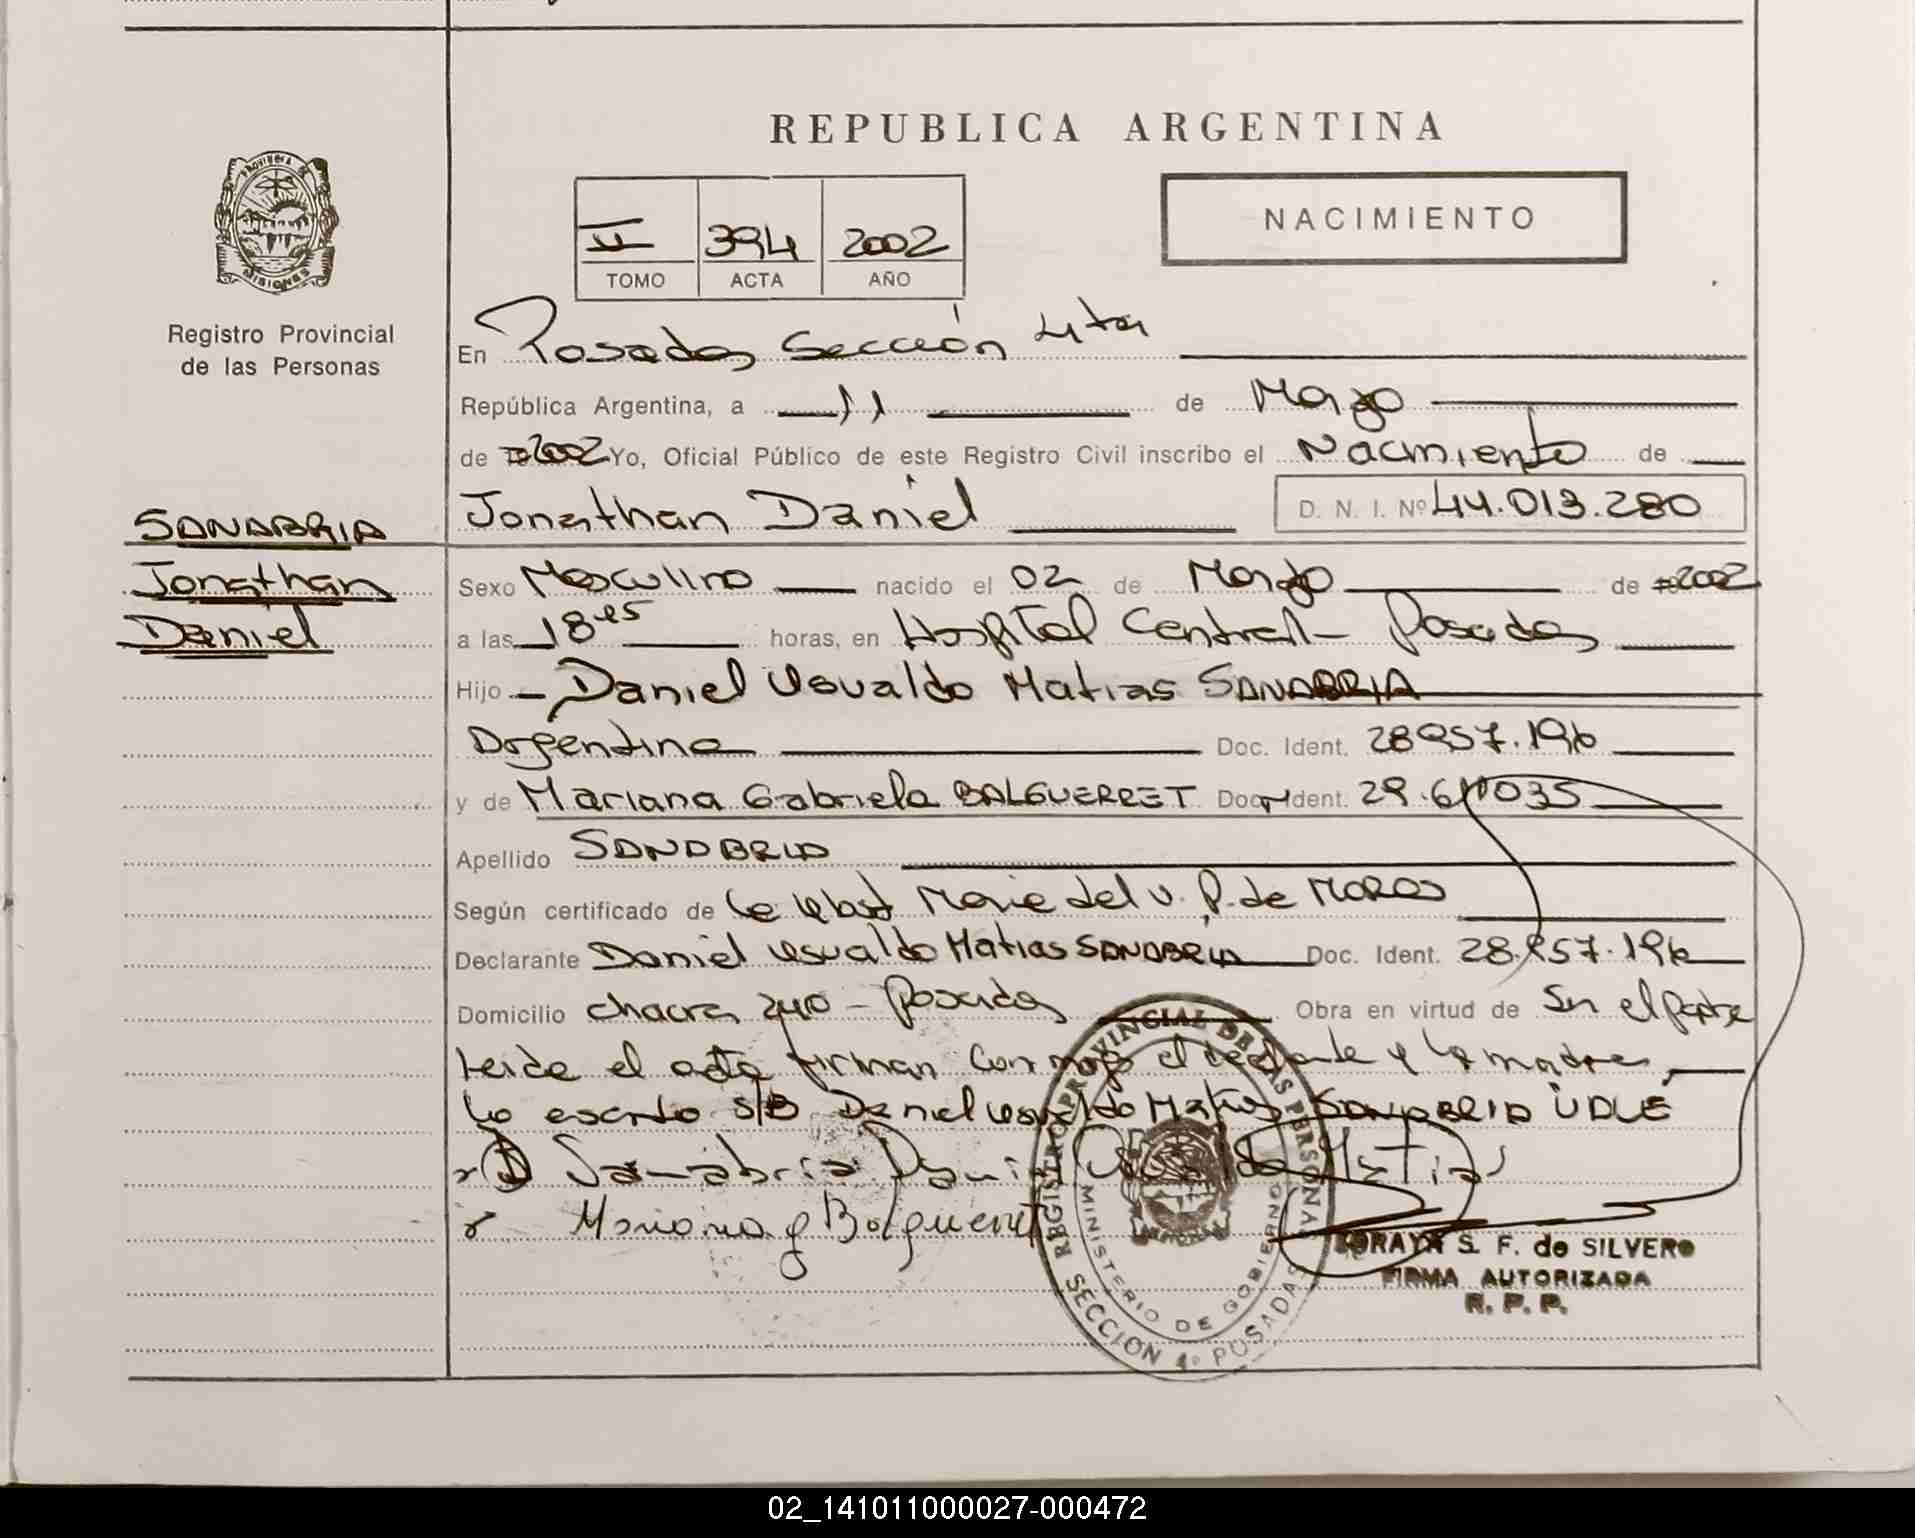 REPUBLICA ARGENTINA
PROVINCIA DE MISIONES
II 394 2002
TOMO ACTA AÑO
NACIMIENTO
Registro Provincial
de las Personas
En Posadas Sección 4ta
República Argentina, a 11 de Marzo
de 2002 Yo, Oficial Público de este Registro Civil inscribo el Nacimiento de
Jonathan Daniel D. N. I. Nº 44.013.280
SANABRIA
Jonathan
Daniel
Sexo Masculino nacido el 02 de Marzo de 2002
a las 18 horas, en Hospital Central - Posadas
Hijo Daniel Usualdo Matias SANABRIA
Argentina Doc. Ident. 28957.196
y de Mariana Gabriela BALGUERRET Doc. Ident. 29.6 035
Apellido SANABRIA
Según certificado de Marie del v. P. de MORAS
Declarante Daniel Usualdo Matias SANABRIA Doc. Ident. 28.957.196
Domicilio chacra 240 - Posadas Obra en virtud de Ser el padre
Leida el acta firman conmigo el declarante y la madre,
Lo escrito s/B Daniel Usualdo Matias SANABRIA VALE
Sanabria Daniel Matias
Mariana g Balguerret
REGISTRO PROVINCIAL DE LAS PERSONAS
MINISTERIO DE GOBIERNO
SECCION 4º POSADAS
SORAYA S. F. de SILVERO
FIRMA AUTORIZADA
R. P. P.
02_141011000027-000472